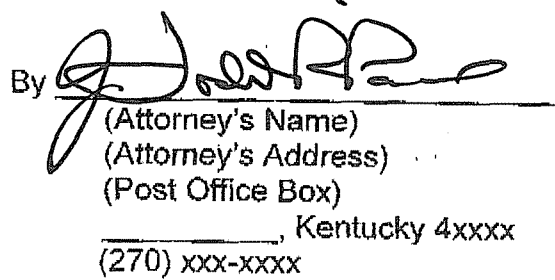 By
(Attorney's Name)
(Attorney's Address)
(Post Office Box)
__________, Kentucky 4xxxx
(270) xxx-xxxx